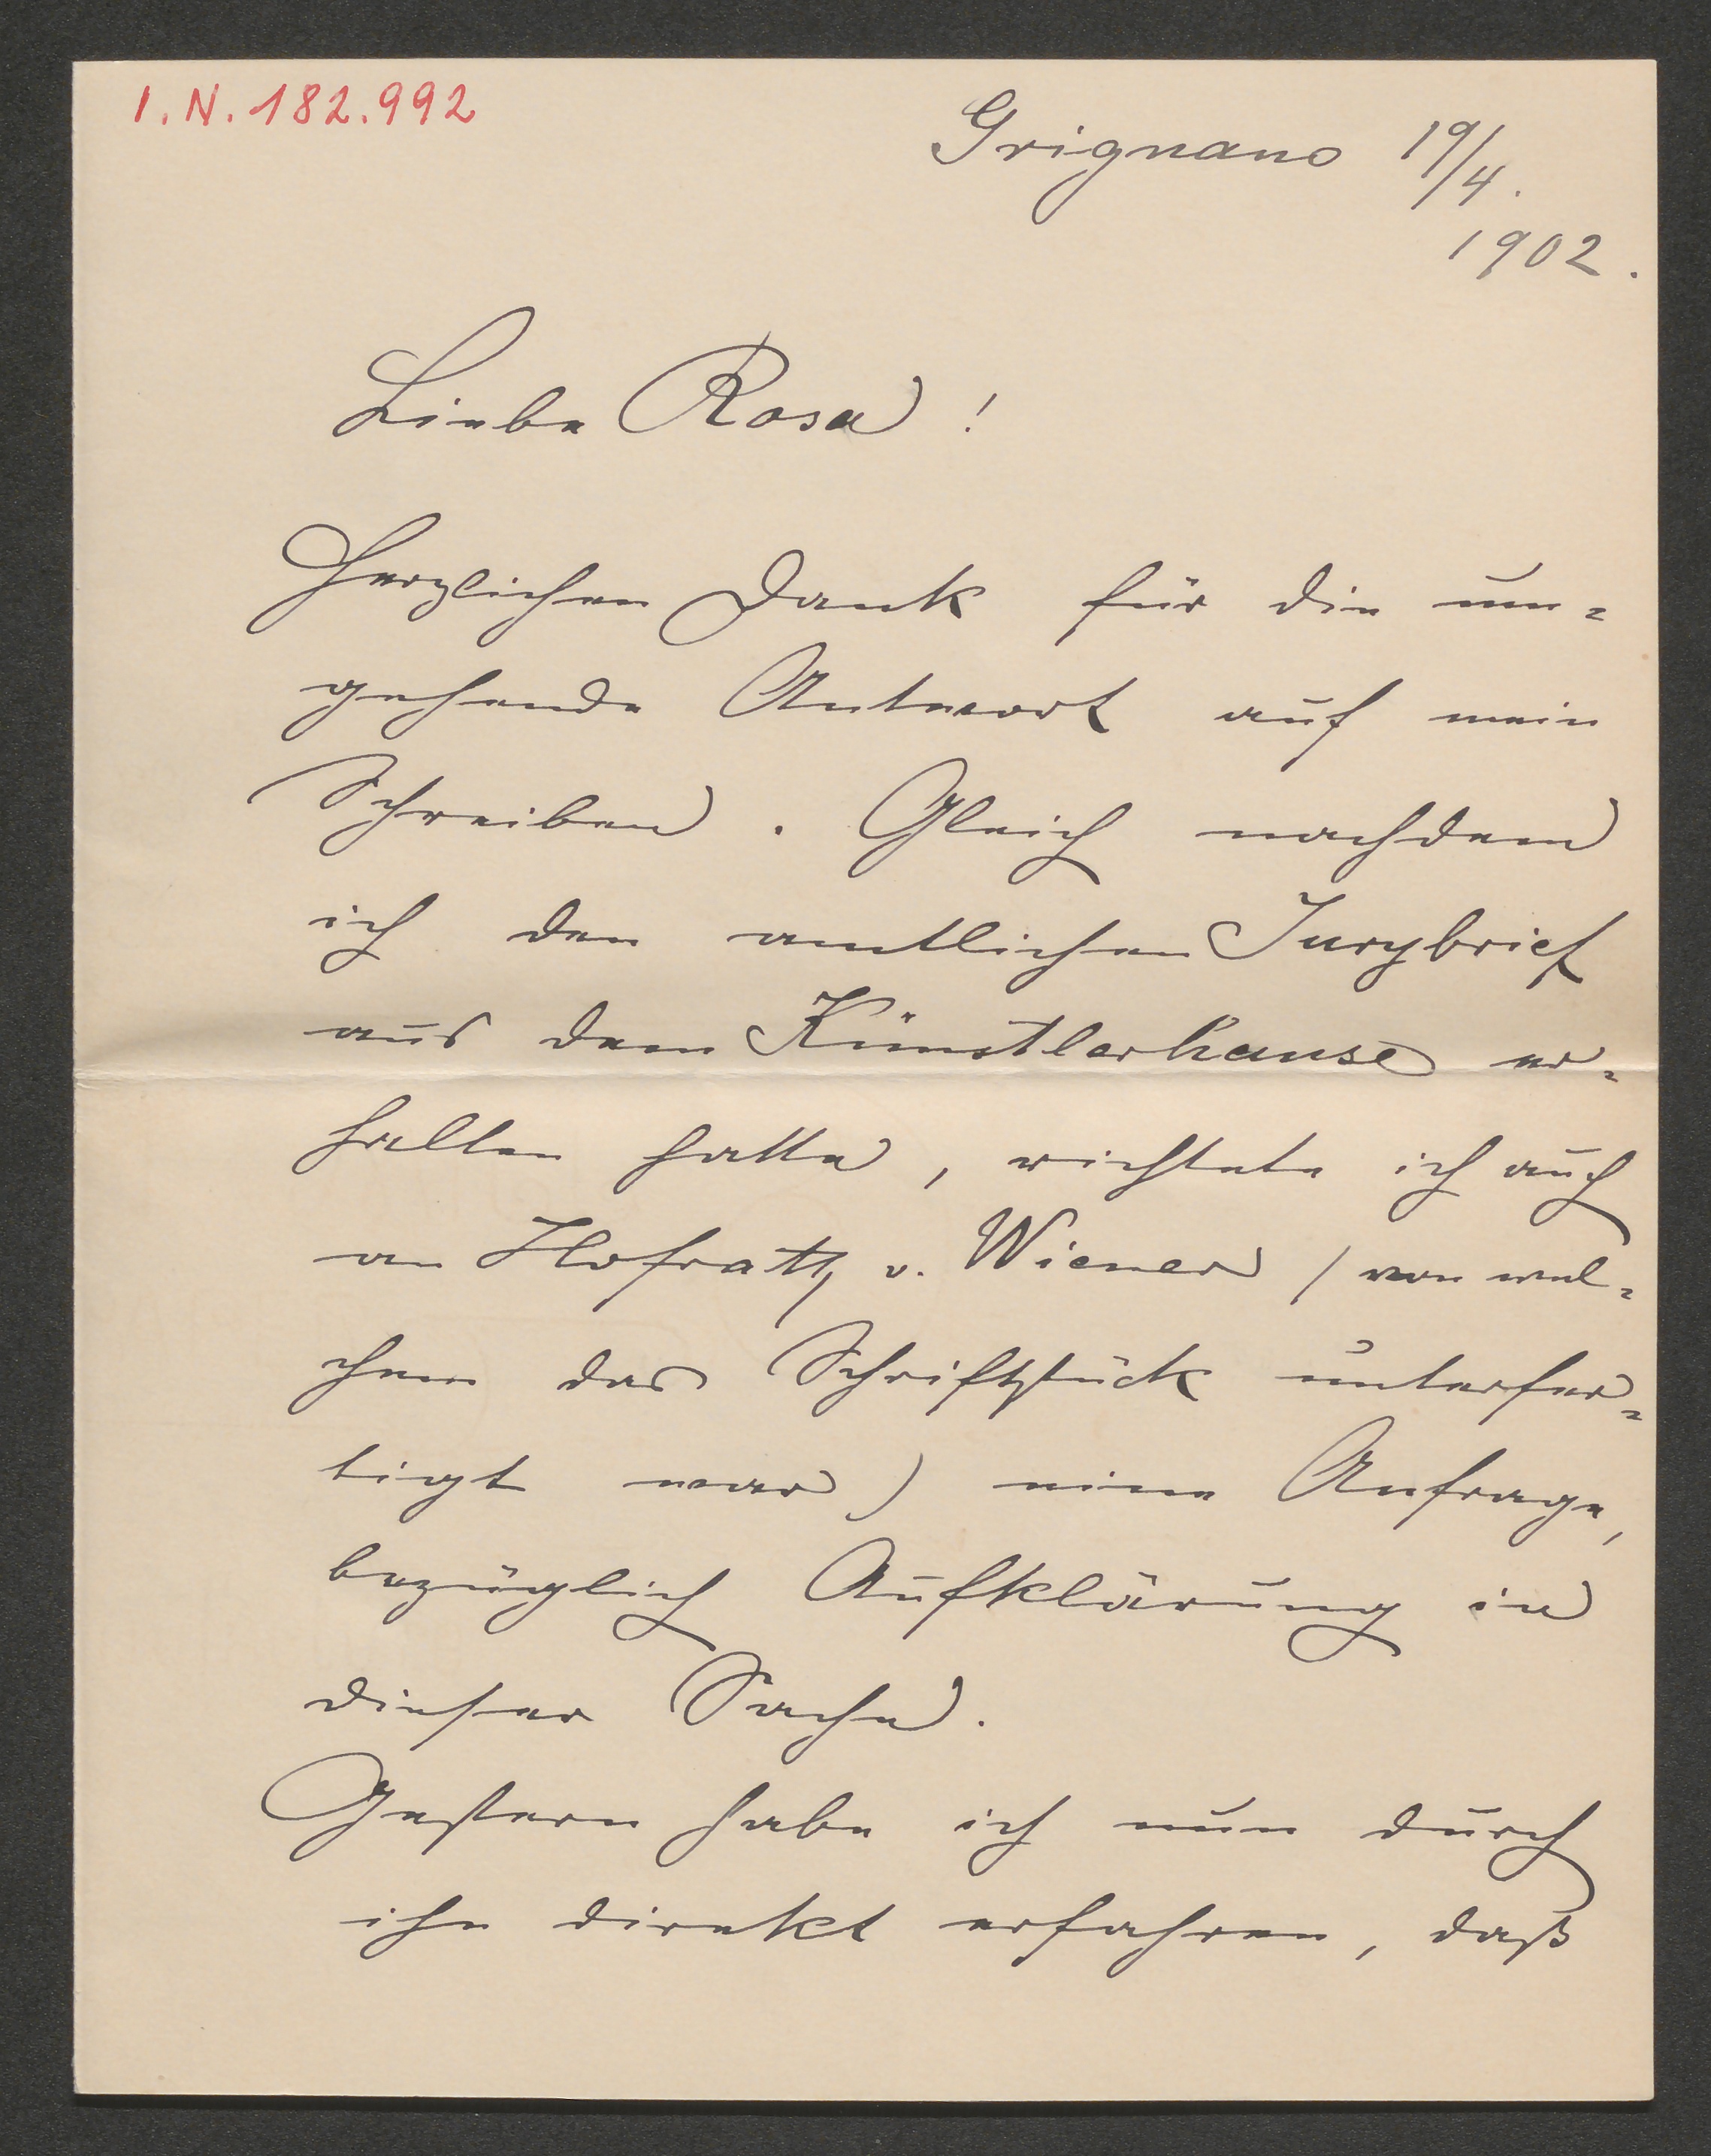 I.N. 182.992
Grignano 19/4.
1902.
Liebe Rosa!
Herzlichen Dank für die um=
gehende Antwort auf mein
Schreiben. Gleich nachdem
ich den amtlichen Jurybrief
aus dem Künstlerhause er=
halten hatte, richtete ich auch
an Hofrath v. Wiener (von wel=
chem das Schriftstück unterfer=
tigt war) eine Anfrage,
bezüglich Aufklärung in
dieser Sache.
Gestern habe ich nun durch
ihn direkt erfahren, daß